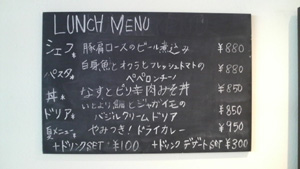 LUNCH MENU
シェフ 豚肩ロースのビール煮込み ¥880
白身魚とオクラとフレッシュトマトの
パスタ ペペロンチーノ ¥880
丼 なすとピリ辛肉みそ丼 ¥850
いとより鯛とジャガイモの
ドリア バジルクリームドリア ¥850
裏メニュー やみつき!ドライカレー ¥950
+ドリンクSET ¥100 +ドリンクデザートSET ¥300